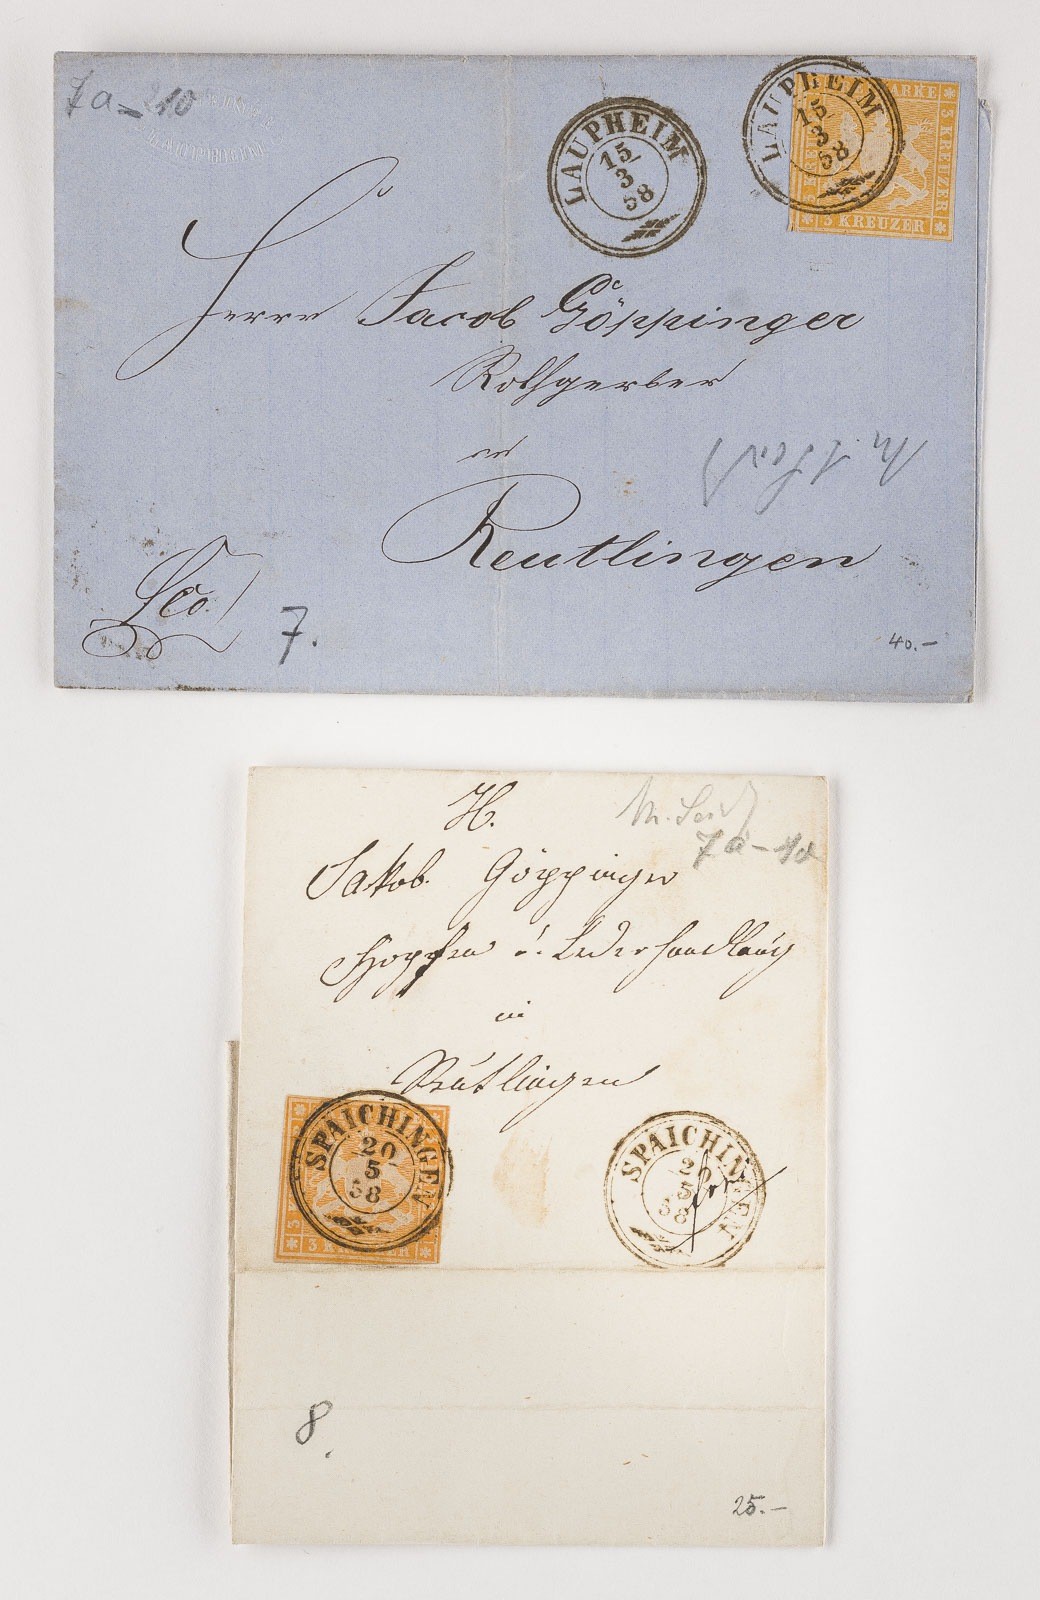 7a -
LAUPHEIM
15
3
58
LAUPHEIM
15
3
58
MARKE
3 KREUZER
3 KREUZER
Herrn Jacob Göppinger
Rothgerber
in
Reutlingen
fco.
7.
40.-
H.
Jakob Göppinger
Hopfen u. Lederhandlung
in
Reutlingen
7a -
SPAICHINGEN
20
5
58
3 KREUZER
SPAICHINGEN
20
5
58
8.
25.-